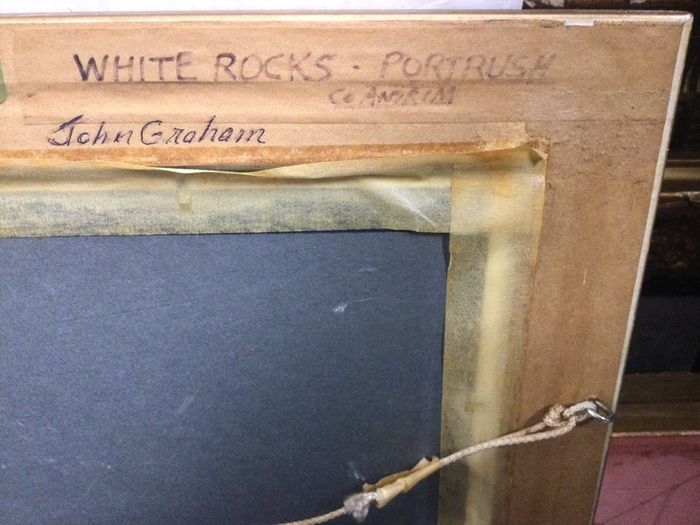 WHITE ROCKS - PORTRUSH
Co ANTRIM
John Graham